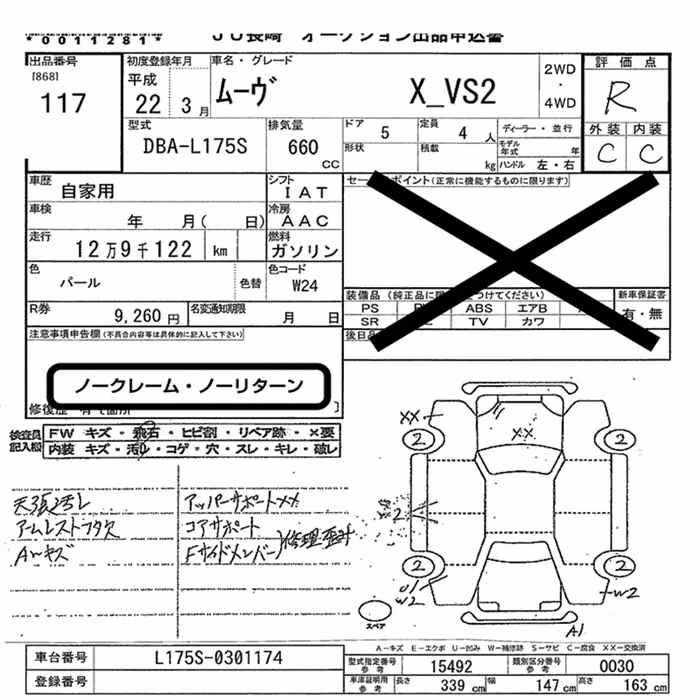 *0011281*
JU長崎 オークション出品申込書
出品番号
[868]
117
初度登録年月
平成
22 3月
車名・グレード
ムーヴ X_VS2
2WD
・
4WD
評価点
R
外装 内装
C C
型式
DBA-L175S
排気量
660
CC
ドア 5
定員 4 人
ディーラー・並行
形状
積載
kg
モデル年式 年
ハンドル 左・右
車歴
自家用
シフト
IAT
車検
年 月( 日)
冷房
AAC
走行
12万9千122 km
燃料
ガソリン
色
パール
色替
色コード
W24
R券
9,260円
名変通知期限
月 日
セー ポイント(正常に機能するものに限ります)
装備品 (純正品に つけてください)
新車保証書
有・無
PS ABS エアB
SR TV カワ
後日
注意事項申告欄(不具合内容等は具体的に記入して下さい)
ノークレーム・ノーリターン
検査員記入欄
FW キズ・飛石・ヒビ割・リペア跡・×要
内装 キズ・汚レ・コゲ・穴・スレ・キレ・破レ
天張汚レ
アームレストフタ欠
Aヘキズ
アッパーサポートメメ
コアサポート
Fサイドメンバー)修理歪計
XX
XX
2
2
2
2
2
U1
W2
W2
A1
スペア
A－キズ E－エクボ U－凹み W－補修跡 S－サビ C－腐食 XX－交換済
車台番号
L175S-0301174
登録番号
型式指定番号 参考
15492
類別区分番号 参考
0030
車庫証明用 参考
長さ 339 cm 幅 147 cm 高さ 163 cm